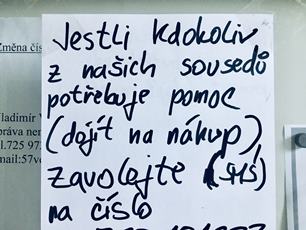 Změna čís
Jestli kdokoliv
z našich sousedů
potřebuje pomoc
(dojít na nákup)
zavolejte (SMS)
na číslo
ladimír V
práva ne
el.725 97
mail:57v